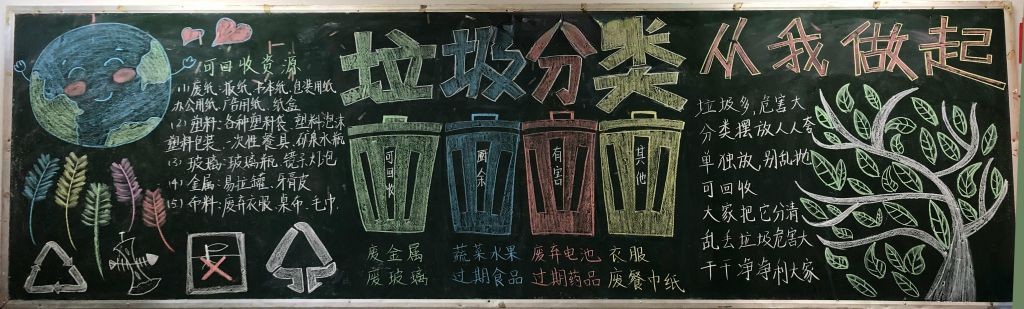 垃圾分类
从我做起
可回收资源
(1)废纸:报纸.书本纸.包装用纸
办公用纸.广告用纸.纸盒
(2)塑料:各种塑料袋.塑料泡沫
塑料包装.一次性餐具.矿泉水瓶
(3)玻璃:玻璃瓶.
(4)金属:易拉罐.牙膏皮
(5)布料:废弃衣服.桌布.毛巾.
可回收
厨余
有害
其他
废金属
废玻璃
蔬菜水果
过期食品
废弃电池
过期药品
衣服
废餐巾纸
垃圾多危害大
分类摆放人人夸
单独放,别乱抛
可回收
大家把它分清
乱丢垃圾危害大
干干净净利大家